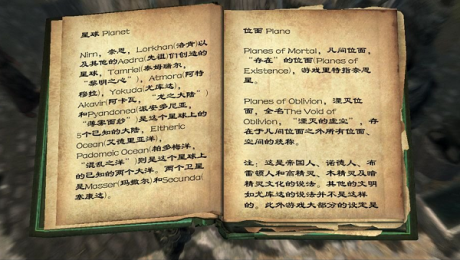 星球 Planet
Nirn，奈恩，Lorkhan(洛肯)以
及其他的Aedra(先祖)们创造的
星球，Tamriel(泰姆瑞尔，
“黎明之心”)，Atmora(阿特
穆拉)，Yokuda(尤库达)，
Akavir(阿卡瓦，“龙之大陆”)
和Pyandonea(派安多尼亚，
“薄雾面纱”)是这个星球上的
5个已知的大陆，Eltheric
Ocean(艾德里亚洋)，
Padomaic Ocean(帕多梅洋，
“混乱之洋”)则是这个星球上
的已知的两个大洋，两个卫星
是Masser(玛瑟尔)和Secunda(
塞康达)。
位面 Plane
Planes of Mortal，凡间位面，
“存在”的位面(Planes of
Existence)，游戏里特指奈恩
星。
Planes of Oblivion，湮灭位
面，全名The Void of
Oblivion，“湮灭的虚空”，存
在于凡间位面之外所有位面、
空间的统称。
注：这是帝国人、诺德人、布
雷顿人和高精灵、木精灵及暗
精灵文化的说法。其他的文明
如龙迷的说法并不是这样
的。此外游戏大部分的设定是